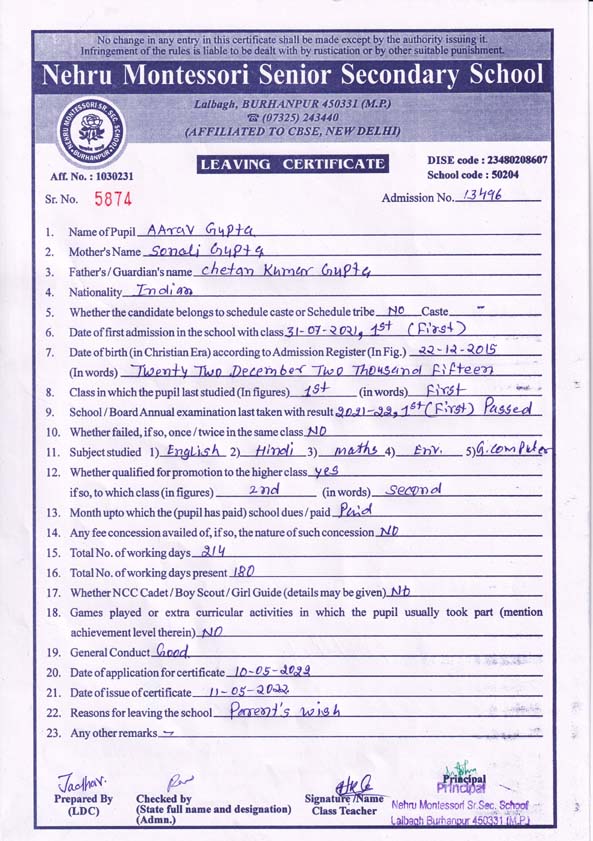 No change in any entry in this certificate shall be made except by the authority issuing it.
Infringement of the rules is liable to be dealt with by rustication or by other suitable punishment.
Nehru Montessori Senior Secondary School
Lalbagh, BURHANPUR 450331 (M.P.)
☎ (07325) 243440
(AFFILIATED TO CBSE, NEW DELHI)
NEHRU MONTESSORI SR. SEC. SCHOOL
BURHANPUR
LEAVING CERTIFICATE
DISE code : 23480208607
Aff. No. : 1030231
School code : 50204
Sr. No. 5874
Admission No. 13496
1. Name of Pupil AArav Gupta
2. Mother's Name Sonali Gupta
3. Father's / Guardian's name Chetan Kumar Gupta
4. Nationality Indian
5. Whether the candidate belongs to schedule caste or Schedule tribe NO Caste -
6. Date of first admission in the school with class 31-07-2021, 1st (First)
7. Date of birth (in Christian Era) according to Admission Register (In Fig.) 22-12-2015
(In words) Twenty Two December Two Thousand Fifteen
8. Class in which the pupil last studied (In figures) 1st (in words) First
9. School / Board Annual examination last taken with result 2021-22, 1st (First) Passed
10. Whether failed, if so, once / twice in the same class NO
11. Subject studied 1) English 2) Hindi 3) maths 4) Env. 5) G.computer
12. Whether qualified for promotion to the higher class yes
if so, to which class (in figures) 2nd (in words) Second
13. Month upto which the (pupil has paid) school dues / paid Paid
14. Any fee concession availed of, if so, the nature of such concession NO
15. Total No. of working days 214
16. Total No. of working days present 180
17. Whether NCC Cadet / Boy Scout / Girl Guide (details may be given) No
18. Games played or extra curricular activities in which the pupil usually took part (mention
achievement level therein) NO
19. General Conduct Good
20. Date of application for certificate 10-05-2022
21. Date of issue of certificate 11-05-2022
22. Reasons for leaving the school Parent's wish
23. Any other remarks -
Jadhav.
Prepared By
(LDC)
Checked by
(State full name and designation)
(Admn.)
Signature /Name
Class Teacher
Principal
Principal
Nehru Montessori Sr.Sec. School
Lalbagh Burhanpur 450331 (M.P.)